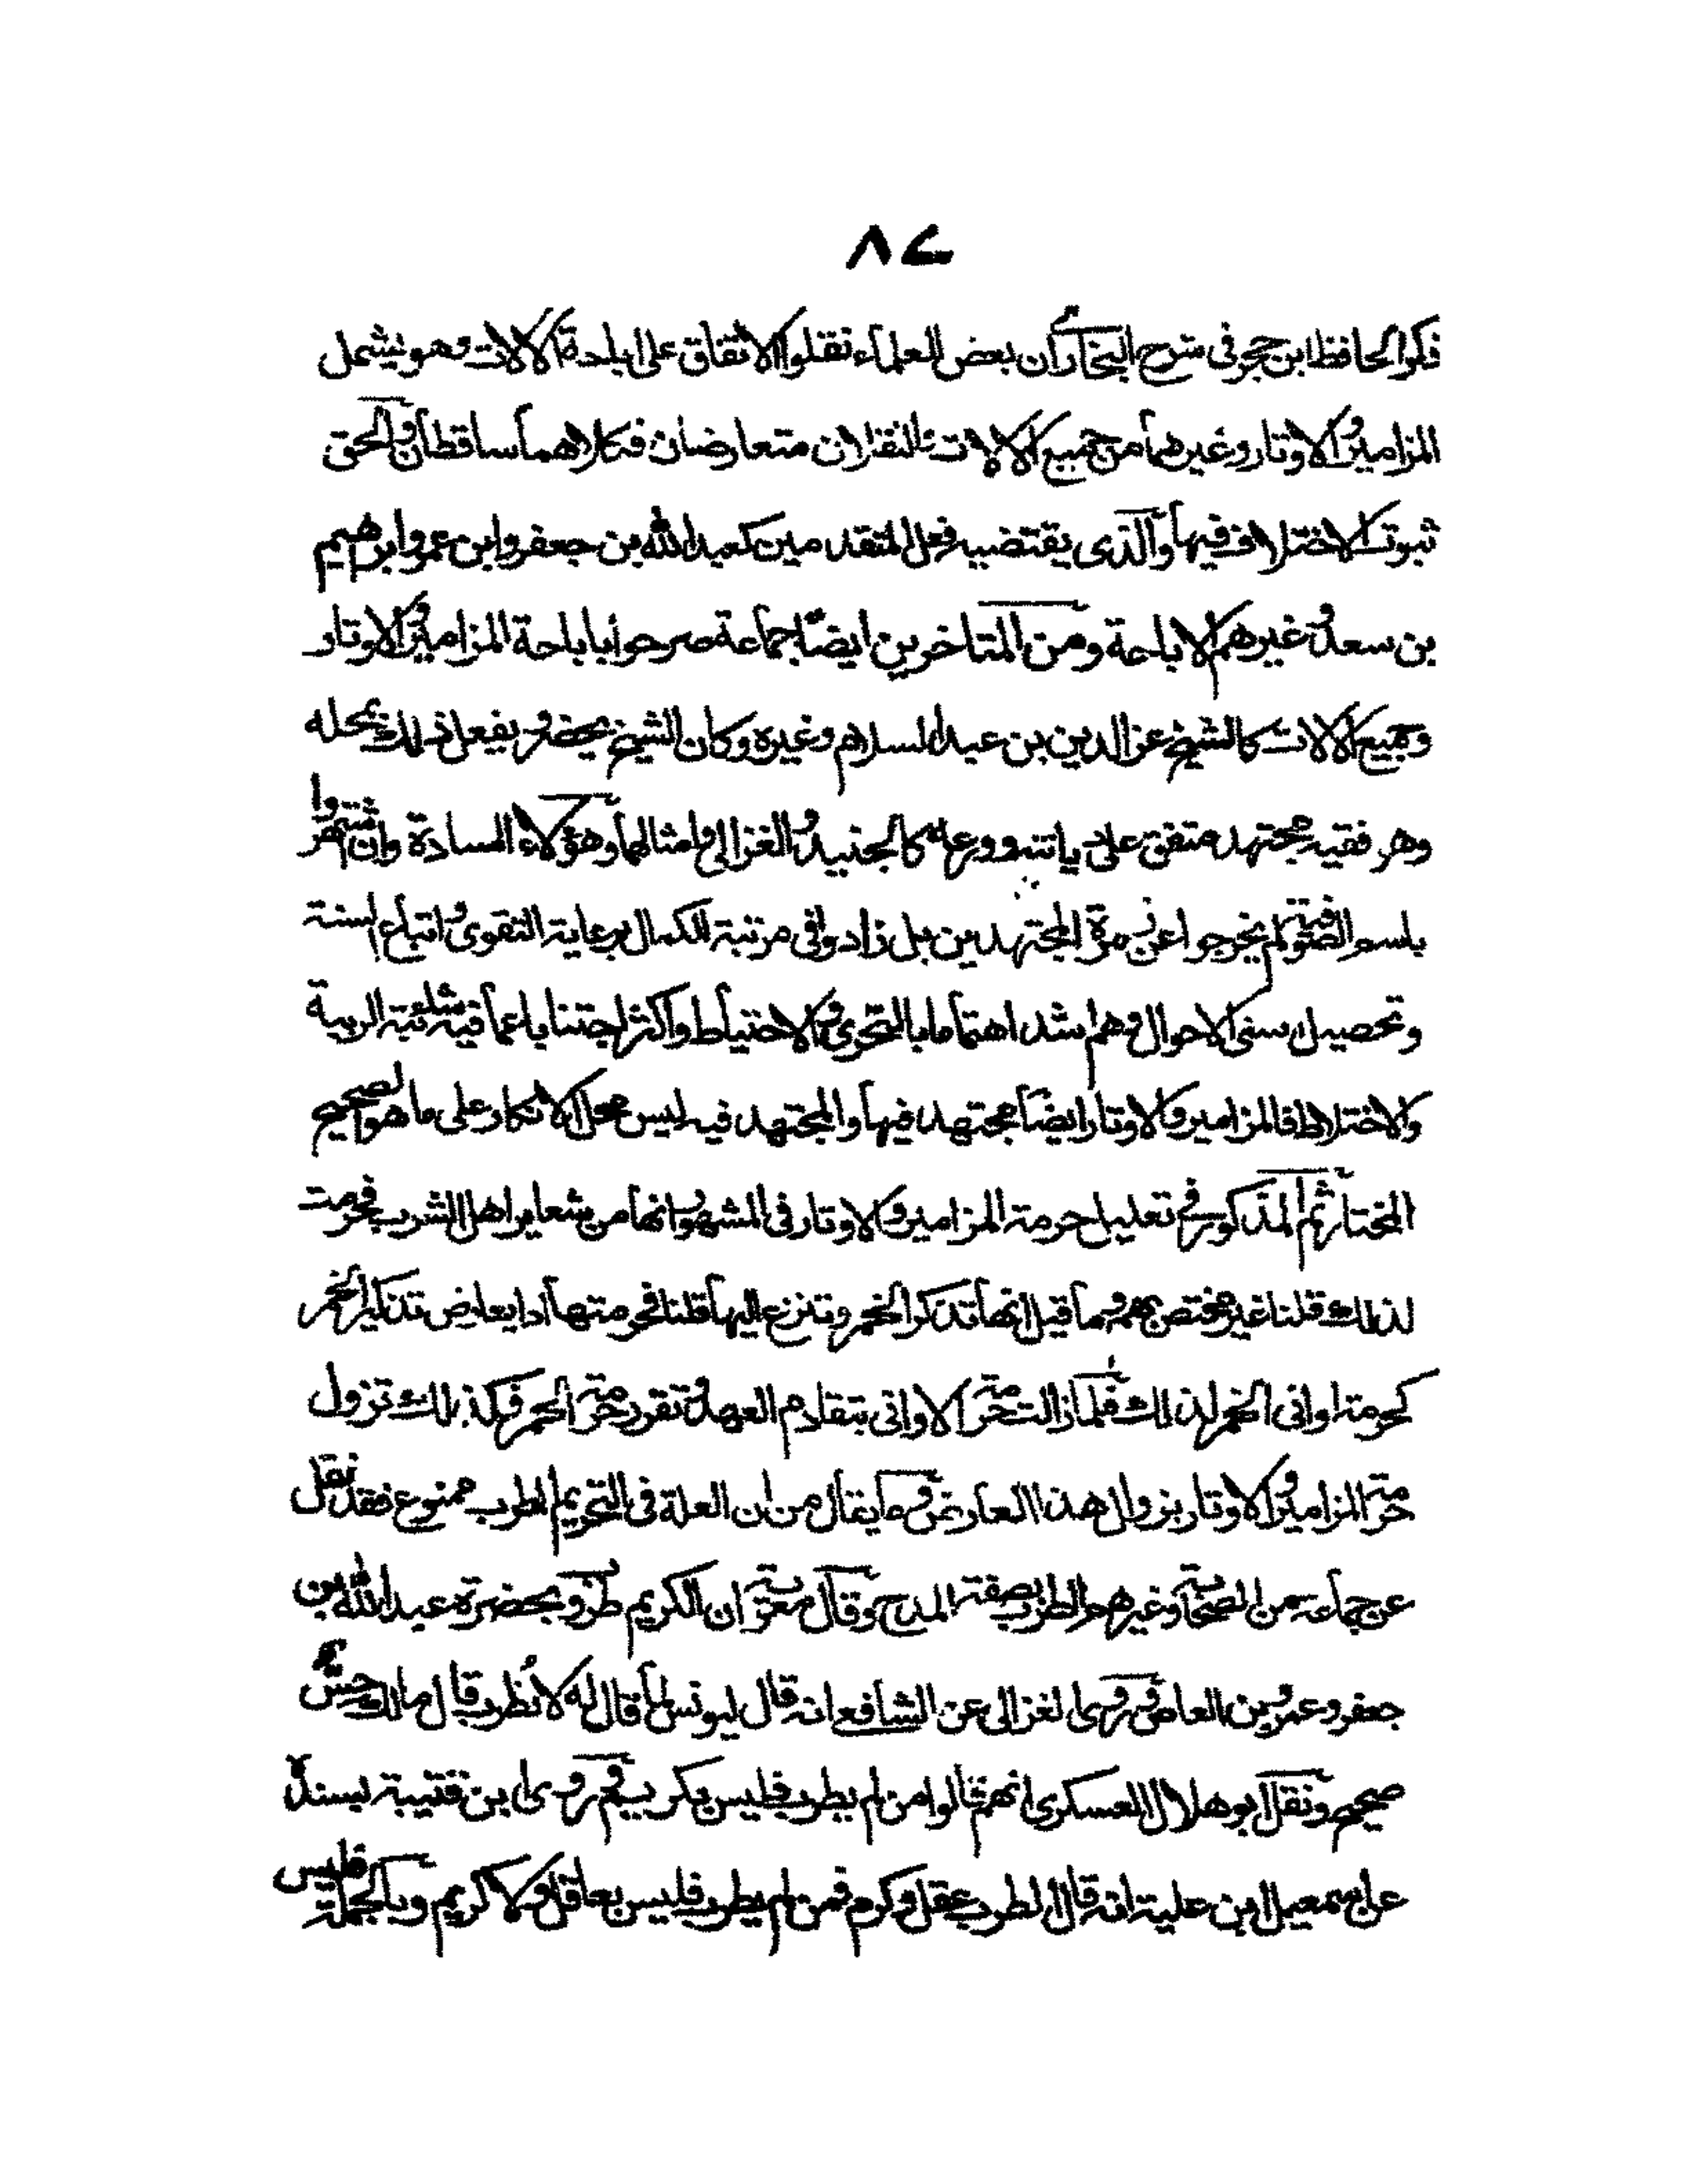 ٨٤
ذكر الحافظ ابن حجر فى شرح البخارى ان بعض العلماء نقلوا الاتفاق على اباحة الالات وهو يشمل
المزامير والاوتار وغيرهما من جميع الالات فالنقلان متعارضان فكلاهما ساقطان والحق
ثبوت الاختلاف فيها والذى يقتضيه فعل المتقدمين كعبد الله بن جعفر وابن عمر وابراهيم
بن سعد وغيرهم الاباحة ومن المتاخرين ايضا جماعة صرحوا باباحة المزامير والاوتار
وجميع الالات كالشيخ عز الدين بن عبد السلام وغيره وكان الشيخ يحضر ويفعل ذلك بمحله
وهو فقيه مجتهد متفق على ديانته وورعه كالجنيد والغزالى وامثالهما وهؤلاء السادة وان اشتهروا
باسم الصوفية لم يخرجوا عن زمرة المجتهدين بل زادوا فى مرتبة الكمال برعاية التقوى واتباع السنة
وتحصيل سنى الاحوال وهم اشد اهتماما بالتحرى والاحتياط واكثر اجتنابا عما فيه شائبة الريبة
والاختلاط فالمزامير والاوتار ايضا مجتهد فيها والمجتهد فيه ليس محل الانكار على ما هو الصحيح
المختار ثم المذكور فى تعليل حرمة المزامير والاوتار فى المشهور انها من شعاير اهل الشرب فحرمت
لذلك قلنا غير مختص بهم وما قيل انها تذكر الخمر وتنزع اليها قلنا فحرمتها اذا يعارض تذكير الخمر
كحرمة اوانى الخمر لذلك فلما زالت حرمة الاوانى بتقادم العهد وتقرر حرمة الخمر فكذلك تزول
حرمة المزامير والاوتار بزوال هذا العارض وما يقال من ان العلة فى التحريم الطرب ممنوع فقد نقل
عن جماعة من الصحابة وغيرهم الطرب بصفة المدح وقال معوية ان الكريم طروب بحضرة عبد الله بن
جعفر وعمرو بن العاص وروى الغزالى عن الشافعى انه قال ليونس لما قال له لا نطرب قال مالك حس
صحيح ونقل ابو هلال العسكرى انهم قالوا من لم يطرب فليس بكريم وروى ابن قتيبة بسنده
عن اسمعيل ابن علية انه قال الطرب عقل وكرم فمن لم يطرب فليس بعاقل ولا كريم وبالجملة فليس